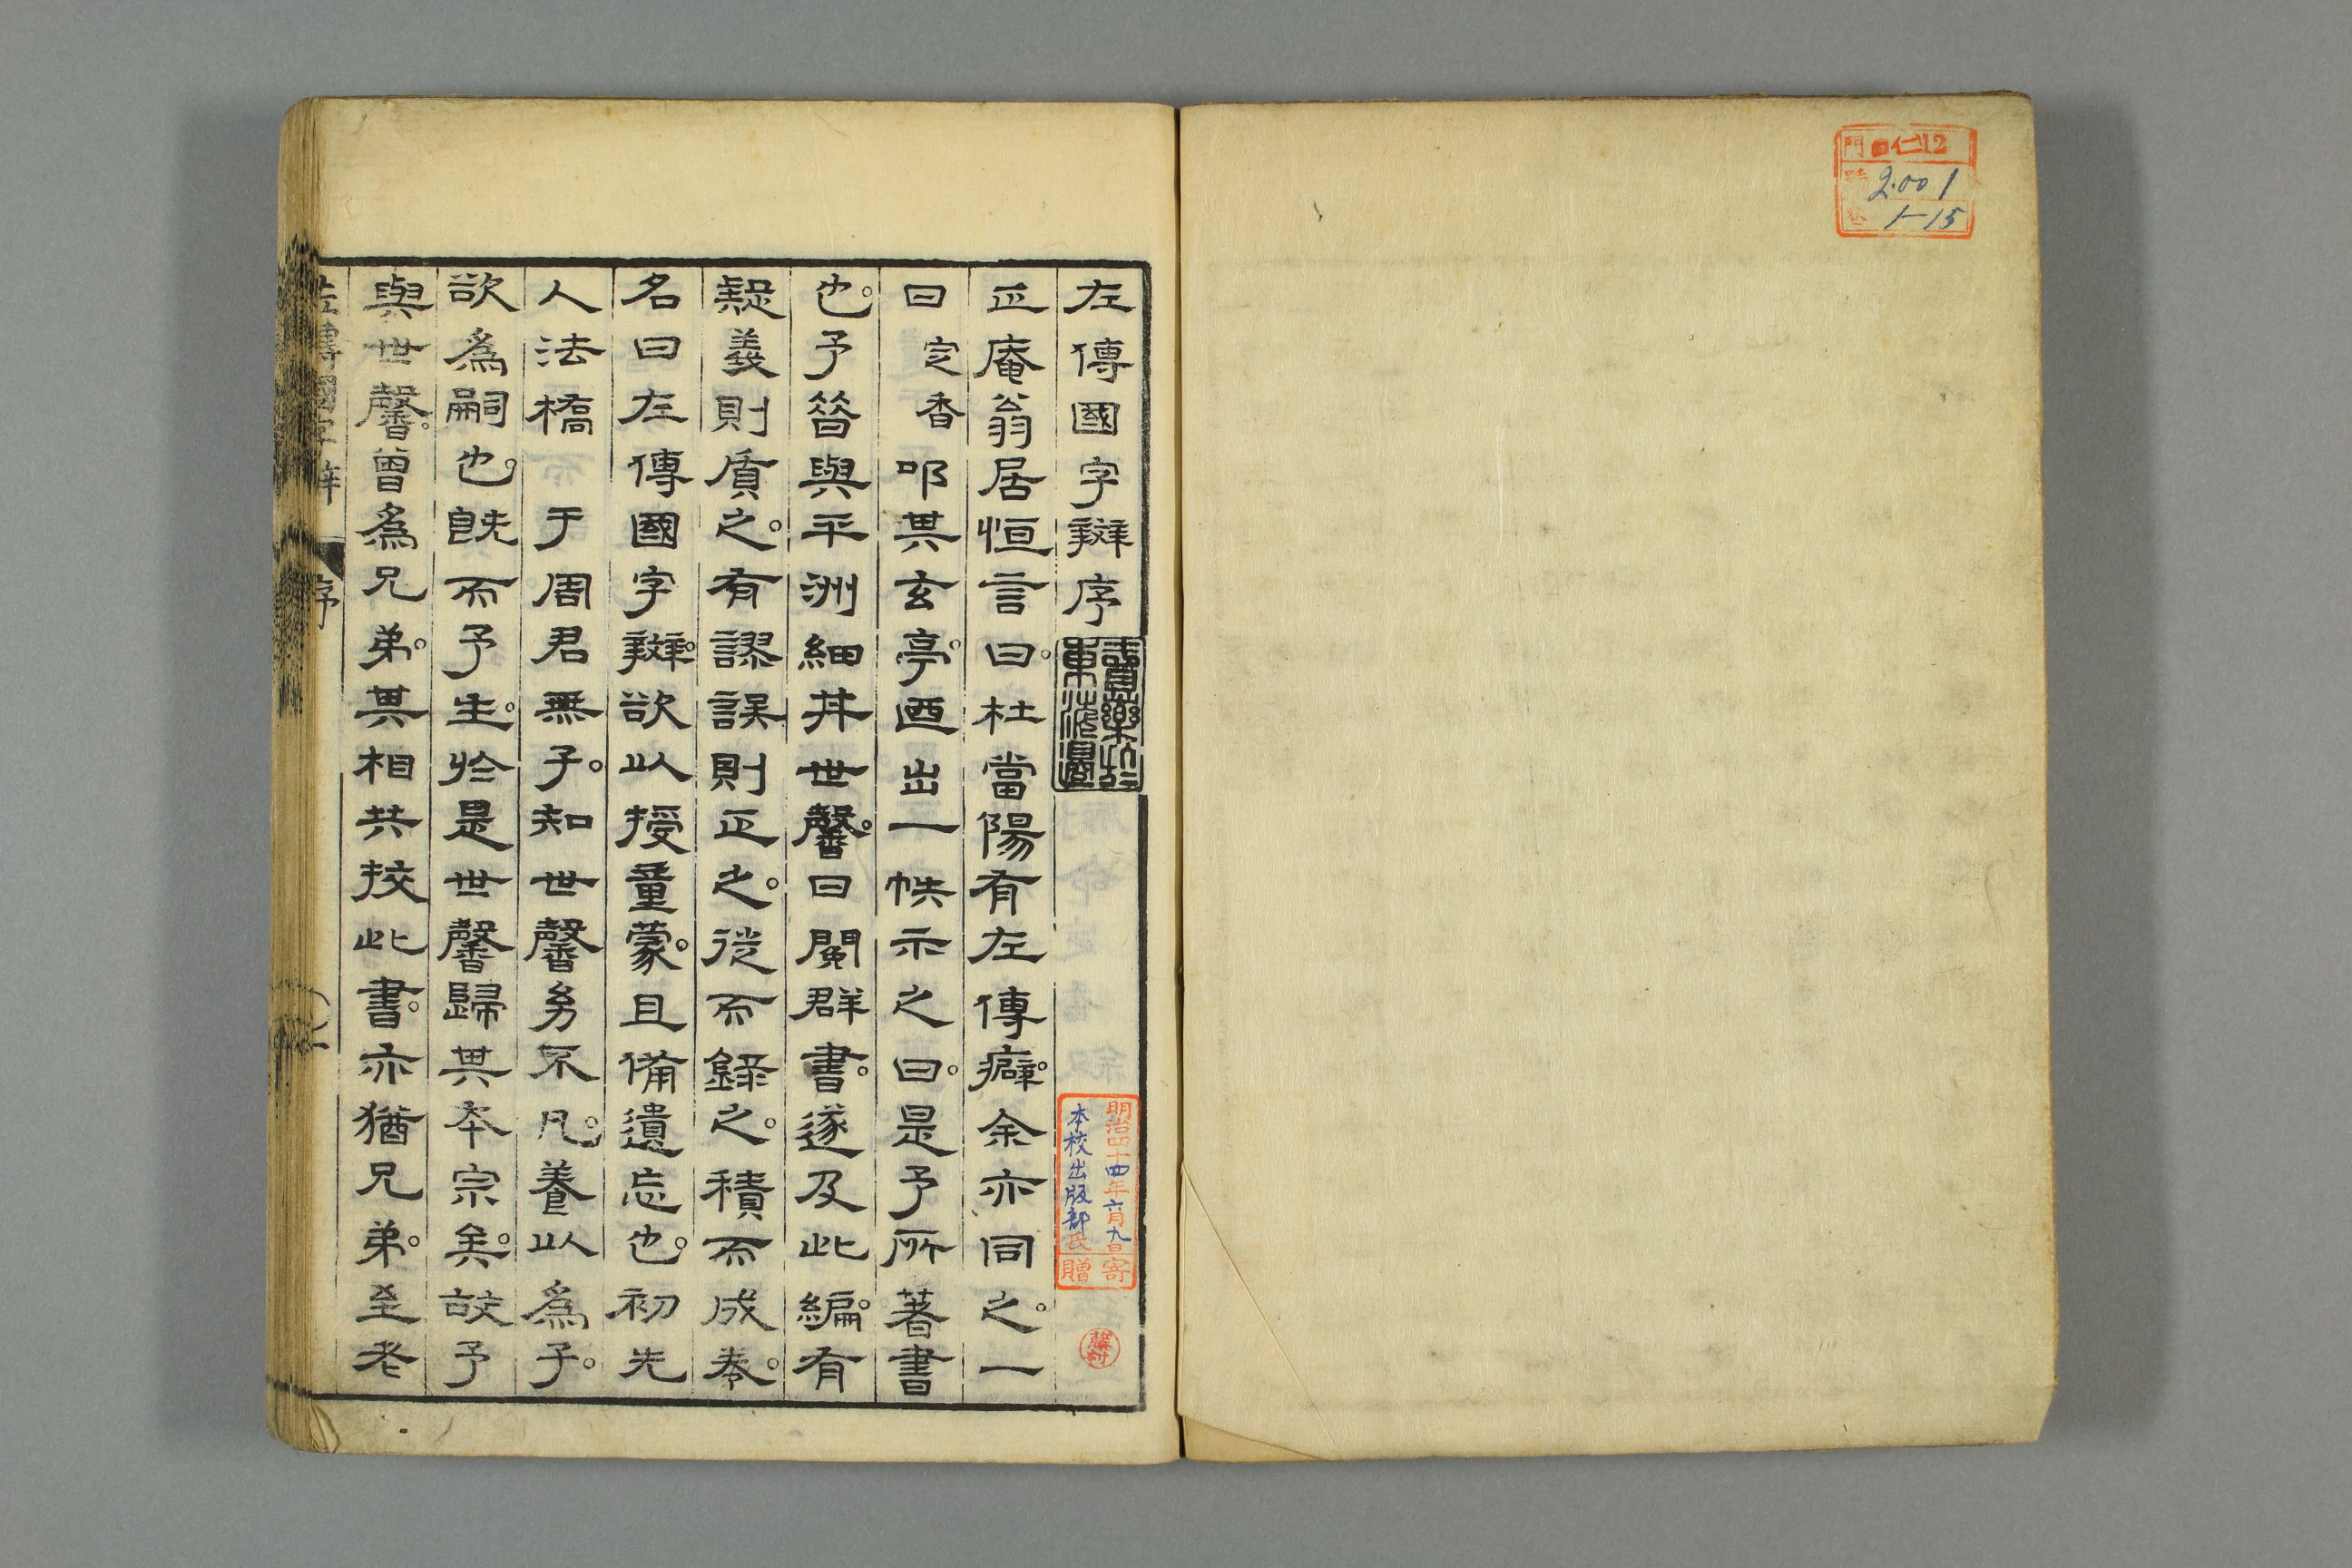 門 仁12
2001
1-15
左傳國字辯序
正庵翁居恒言曰杜當陽有左傳癖余亦同之一
曰定香叩其玄亭迺出一帙示之曰是予所著書
也予昝與平洲細井世馨曰閱群書遂及此編有
疑義則質之有謬誤則正之從而錄之積而成卷
名曰左傳國字辯欲以授童蒙且備遺忘也初先
人法橋于周君無子知世馨幼不凡養以爲子
欲爲嗣也旣而予生於是世馨歸其本宗矣故予
與世馨曾爲兄弟其相共挍此書亦猶兄弟至老
左傳國字辯 序 一
明治四十四年六月九日寄
本校出版部氏贈